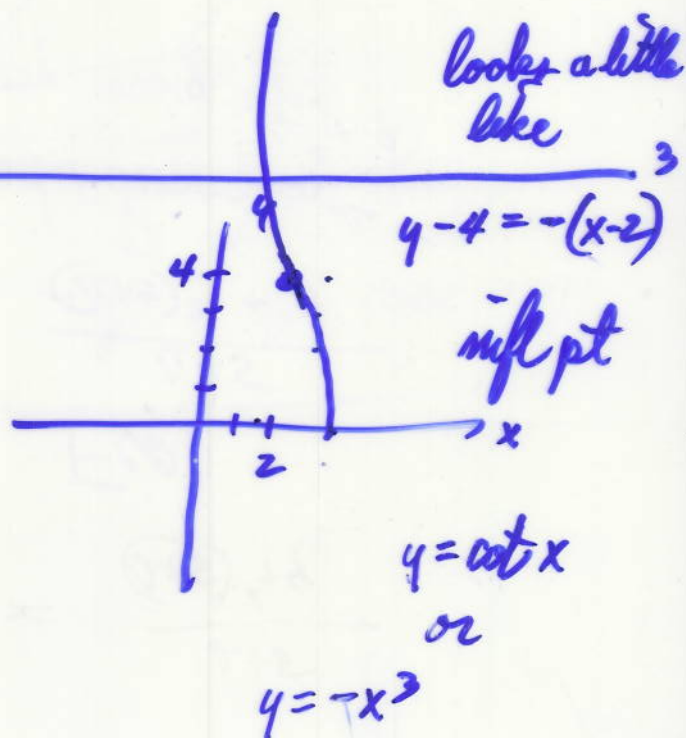 looks a little
like
3
y-4 = -(x-2)
y
4
infl pt
x
2
y = cot x
or
y = -x³